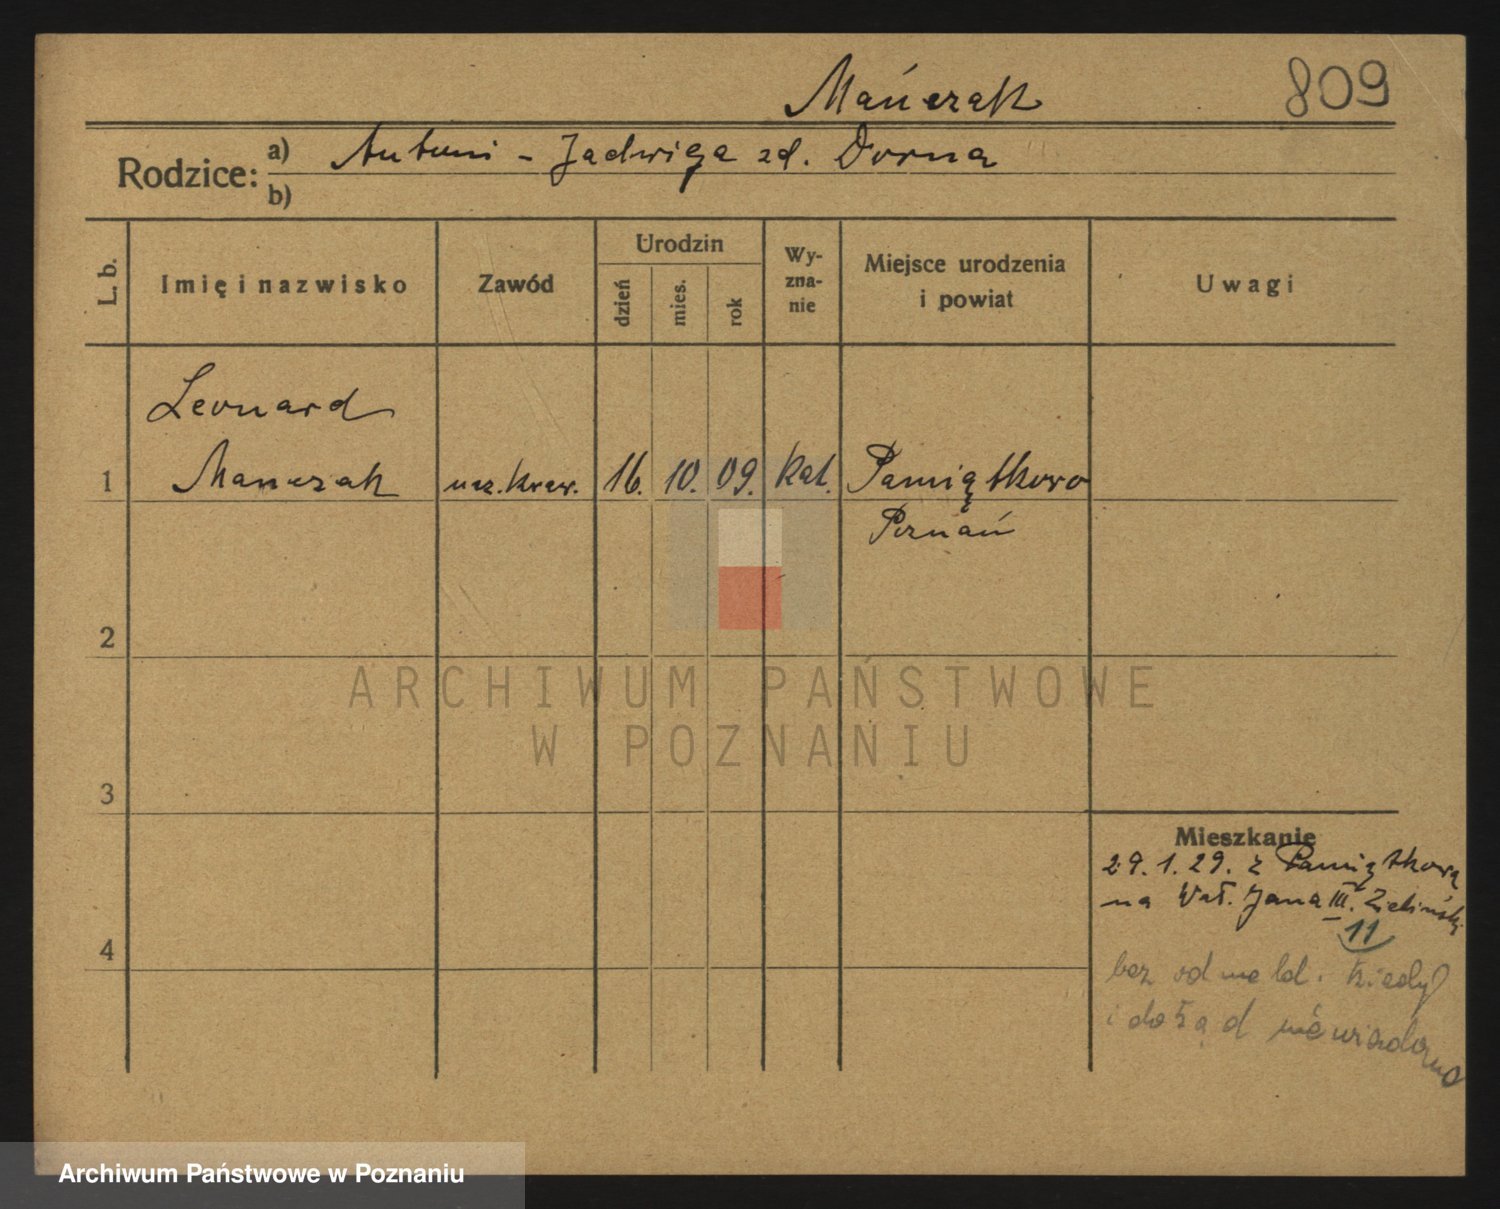 Mańczak 809
Rodzice: a) Antoni - Jadwiga zd. Dorna
b)
L. b. Imię i nazwisko Zawód Urodzin dzień mies. rok Wy-zna-nie Miejsce urodzenia i powiat Uwagi
Leonard
1 Manczak ucz. kraw. 16. 10. 09. kat. Pamiątkowo
Poznań
2
ARCHIWUM PAŃSTWOWE
W POZNANIU
3
Mieszkanie
29. 1. 29. z Pamiątkowa
na Wał. Jana III. Zieliński
11
4
bez odmeld. kiedy
i dokąd niewiadomo
Archiwum Państwowe w Poznaniu